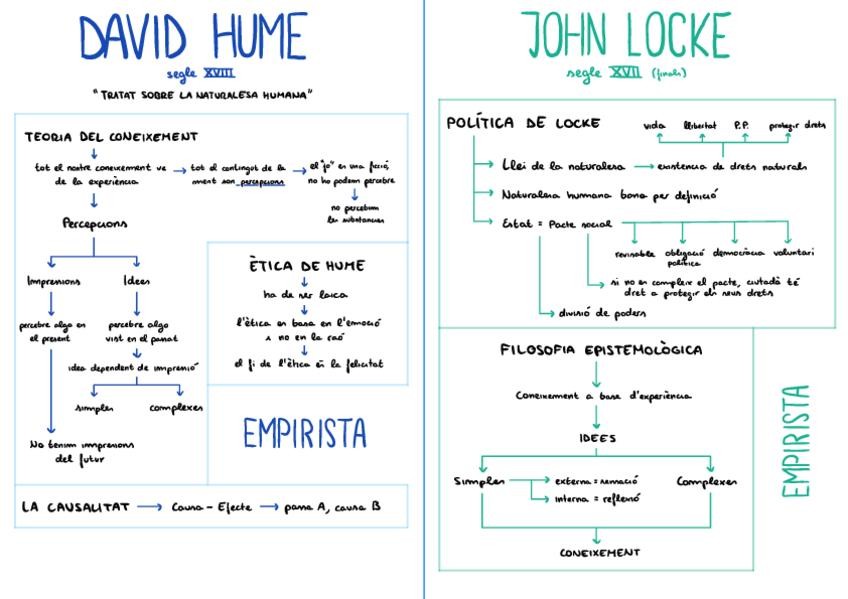 DAVID HUME
segle XVIII
"TRATAT SOBRE LA NATURALESA HUMANA"
TEORIA DEL CONEIXEMENT
tot el nostre coneixement ve
de la experiència
tot el contingut de la
ment son percepcions
el "jo" es una ficció,
no ho podem percebre
no percebem
les substàncies
Percepcions
Impresions
Idees
percebre algo en
el present
percebre algo
vist en el passat
idea dependent de impresió
simples
complexes
No tenim impresions
del futur
ÈTICA DE HUME
ha de ser laica
l'ètica es basa en l'emoció
i no en la raó
el fi de l'ètica és la felicitat
EMPIRISTA
LA CAUSALITAT
Causa - Efecte
passa A, causa B
JOHN LOCKE
segle XVII (finals)
POLÍTICA DE LOCKE
vida
llibertat
P.P.
protegir drets
Llei de la naturalesa
existencia de drets naturals
Naturalesa humana bona per definició
Estat = Pacte social
revisable
obligació
política
democràcia
voluntari
si no es compleix el pacte, ciutadà té
dret a protegir els seus drets
divisió de poders
FILOSOFIA EPISTEMOLÒGICA
Coneixement a base d'experiència
IDEES
Simples
externa = sensació
interna = reflexió
Complexes
CONEIXEMENT
EMPIRISTA